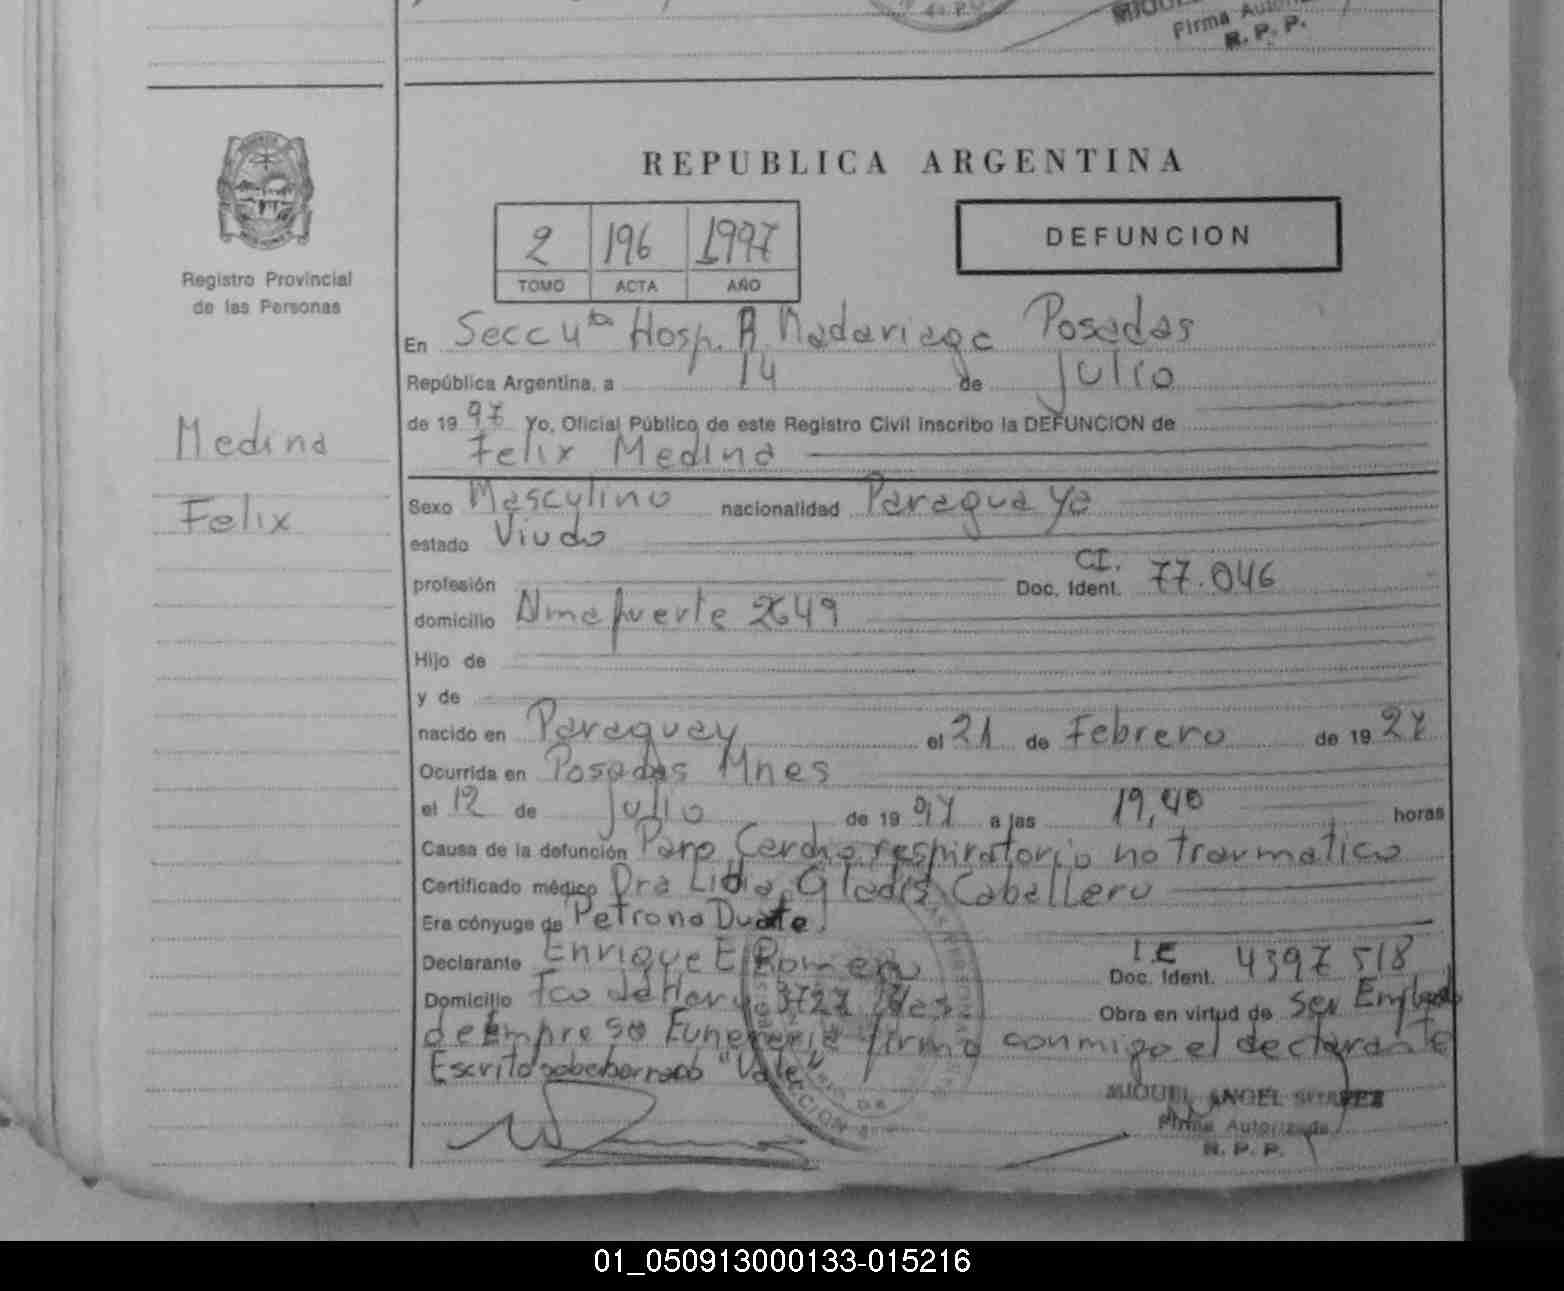 Firma Autoriz
R. P. P.
REPUBLICA ARGENTINA
2 196 1997
TOMO ACTA AÑO
DEFUNCION
Registro Provincial
de las Personas
Medina
Felix
En Secc 4ta Hosp. R Madariaga Posadas
República Argentina, a 14 de Julio
de 1997 Yo, Oficial Público de este Registro Civil inscribo la DEFUNCION de
Felix Medina
Sexo Masculino nacionalidad Paraguaya
estado Viudo
profesión CI. Doc. Ident. 77.046
domicilio Almafuerte 2649
Hijo de
y de
nacido en Paraguay el 21 de Febrero de 1927
Ocurrida en Posadas Mnes
el 12 de Julio de 1997 a las 19,40 horas
Causa de la defunción Paro Cardio respiratorio no traumatico
Certificado médico Dra Lidia Gladis Caballero
Era cónyuge de Petrona Duarte
Declarante Enrique E Romero Doc. Ident. 4397518
Domicilio Fco de Haro 3727 Pdas Obra en virtud de ser Empleado
de Empresa Funeraria firma conmigo el declarante
Escrito sobreborrado "Vale"
MIGUEL ANGEL SUAREZ
Firma Autorizada
R. P. P.
01_050913000133-015216